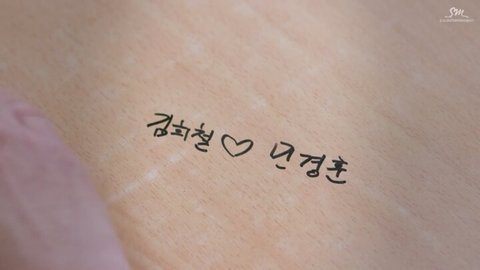 김희철♡민경훈
SM